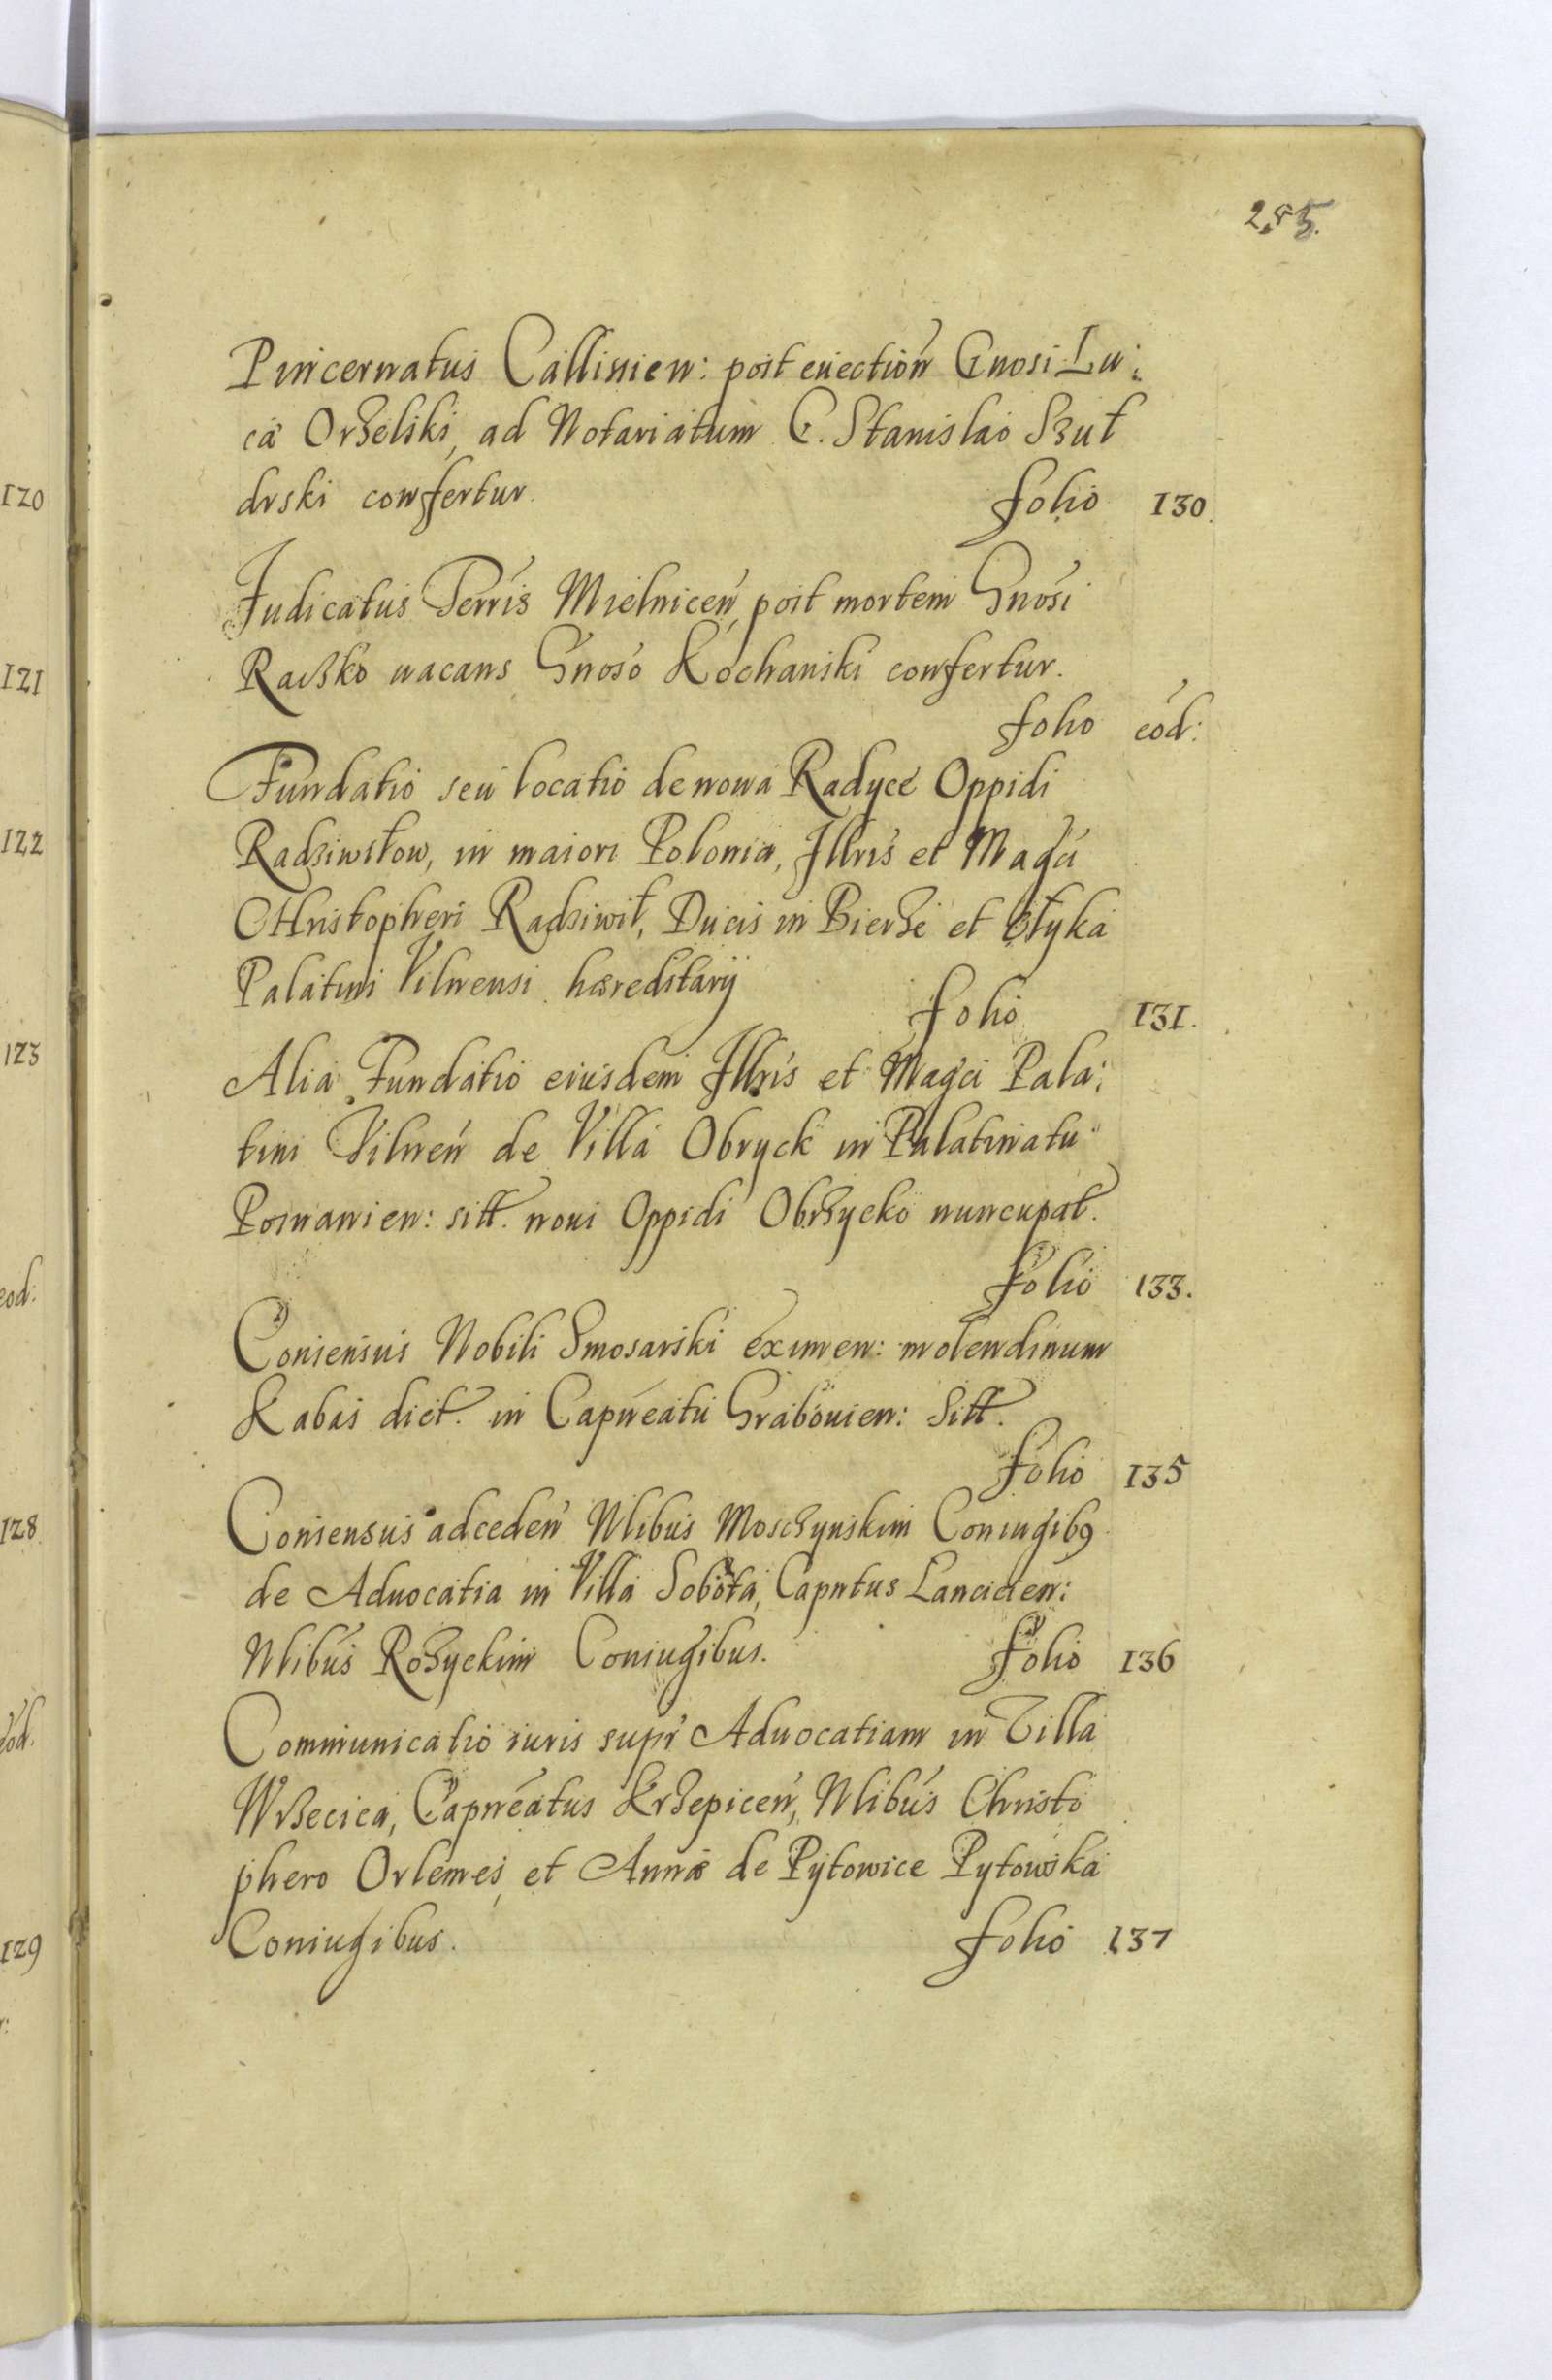 285.
Pincernatus Callisien: post euection Gnosi Lu:
cæ Orzelski, ad Notariatum G. Stanislao Szuł
drski confertur. folio 130.
Judicatus Terris Mielnicen, post mortem Gnosi
Raczko uacans Gnoso Kochanski confertur.
folio eod:
Fundatio seu locatio de noua Radyce Oppidi
Radziwiłow, in maiori Polonia, Illris et Magci
Christopheri Radziwił, Ducis in Bierze et Ołyka
Palatini Vilnensi hæreditarij folio 131.
Alia Fundatio eiusdem Illris et Magci Pala:
tini Vilnen de Villa Obryck in Palatinatu
Posnanien: sitt. noui Oppidi Obrzycko nuncupat.
folio 133.
Consensus Nobili Smosarski eximen: molendinum
Kabas dict. in Capneatu Grabouien: Sitt.
folio 135
Consensus ad ceden Nlibus Moschynskim Coniugibq
de Aduocatia in Villa Sobota, Capntus Lancicien:
Nlibus Rozyckim Coniugibus. folio 136
Communicatio iuris supr Aduocatiam in Villa
Wrzecica, Capneatus Krzepicen, Nlibus Christo
phero Orlemes, et Annæ de Pytowice Pytowska
Coniugibus. folio 137
120
121
122
123
eod:
128
eod.
129